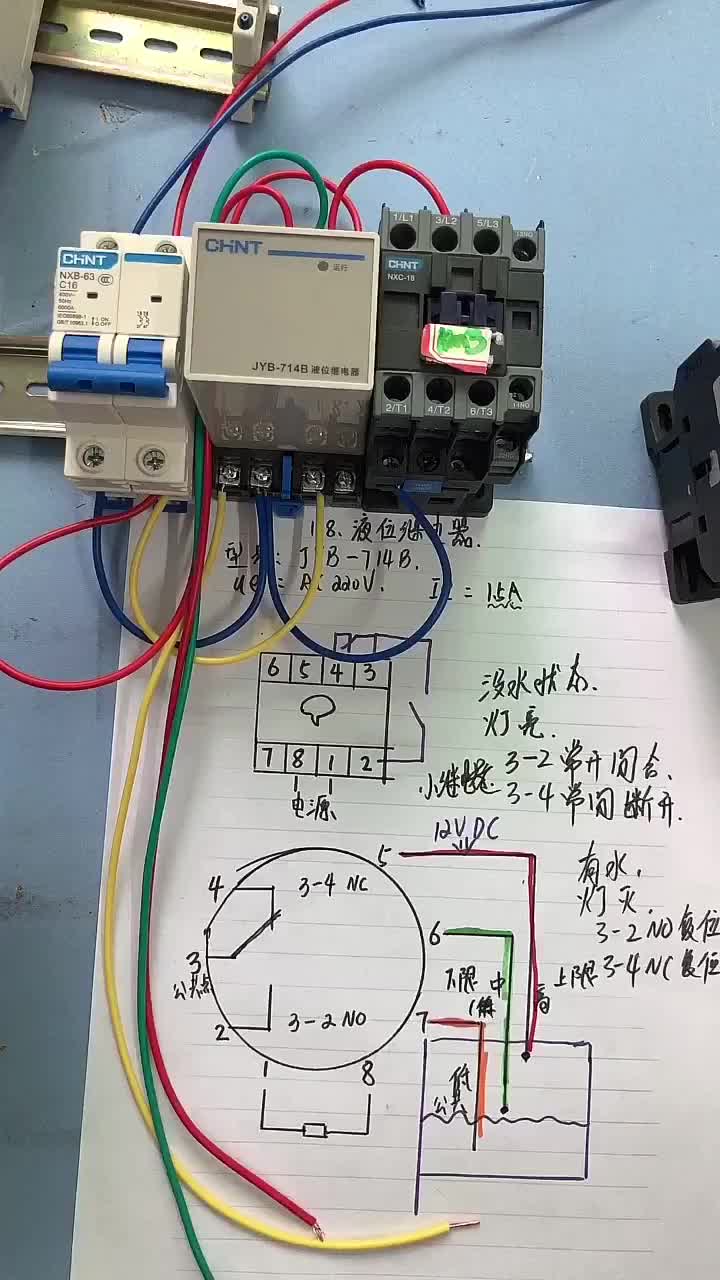 1/L1 3/L2 5/L3 13NO
CHNT
NXB-63
C16
400V~
50Hz
6000A
CHNT
运行
JYB-714B 液位继电器
CHNT
NXC-18
2/T1 4/T2 6/T3 14NO
液位继电器.
型号: JYB-714B.
= AC 220V.
= 1.5A
6 5 4 3
7 8 1 2
电源
没水状态.
灯亮.
小继电器 3-2常开闭合.
3-4常闭断开.
12V DC
有水,
灯灭.
3-2 NO复位
上限 3-4 NC复位
5
4 3-4 NC
6
3
公共点
下限 中
高
2 3-2 NO
7
1 8
低
公共